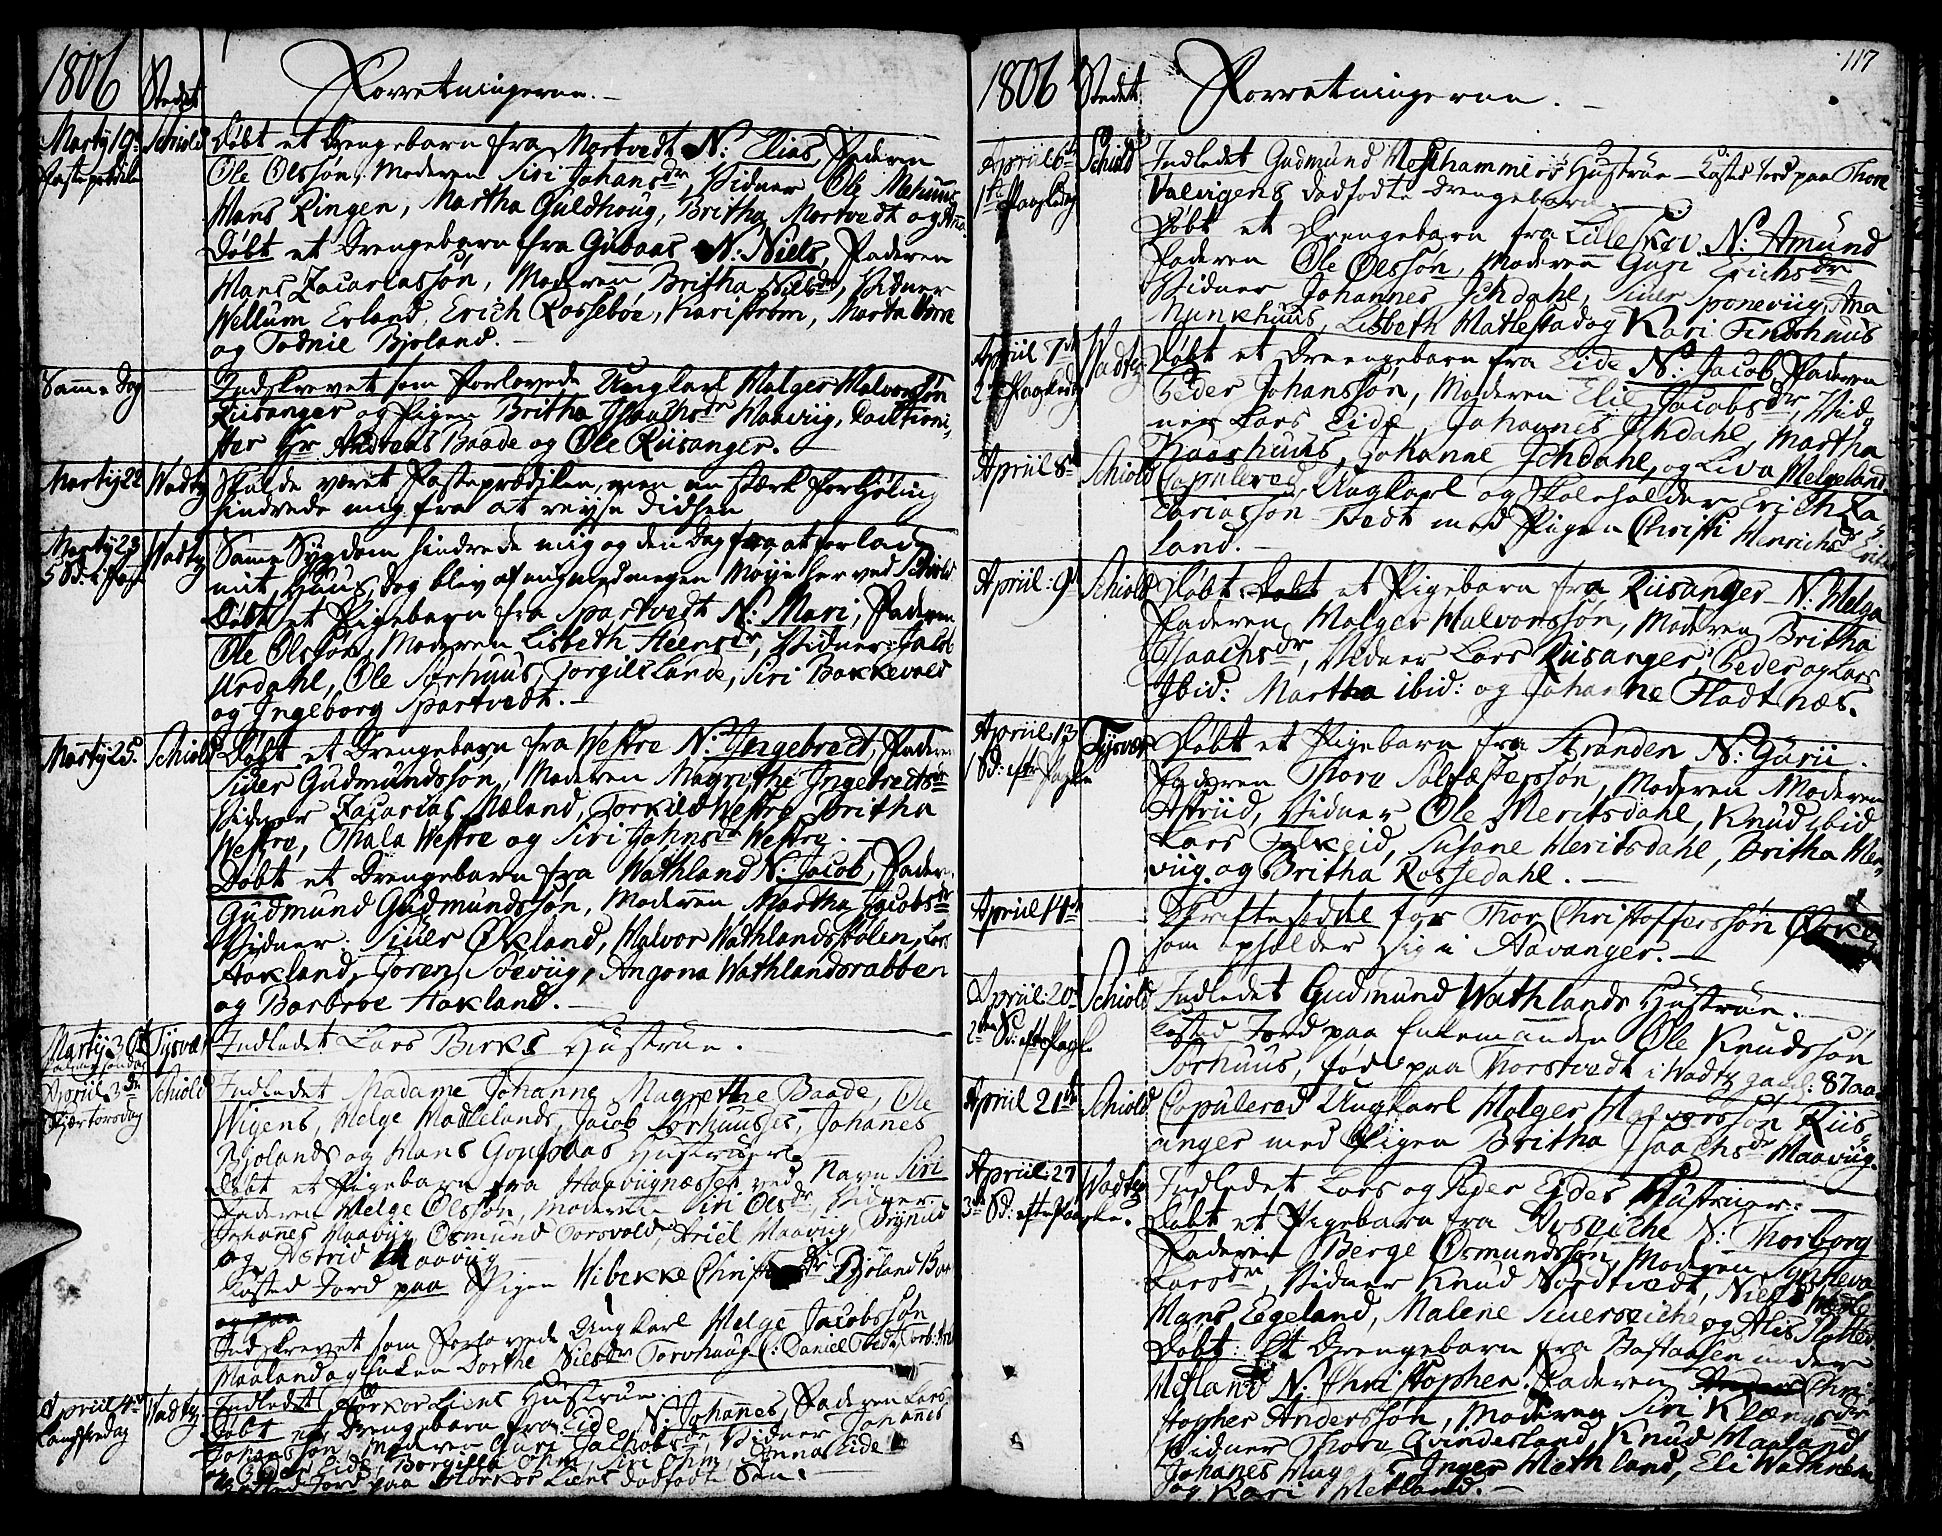 1806
Stedet
Forretningerne.
Martij 19de
Fasteprædiken
Schiold
Døbt et Drengebarn fra Mortvedt N: Elias, Faderen
Ole Olssøn, Moderen Siri Johansdr, Vidner Ole
Hans Ringen, Martha Guldhoug, Britha Mortvedt og
Døbt et Drengebarn fra Gubaas N: Niels, Faderen
Hans Zacariassøn, Moderen Britha Nielsdr, Vidner
Wellum Erland, Erich Rossebøe, Kari Strøm, Marta
og Todnie Bjoland.
Samme Dag
Indskrevet som Forlovede Ungkarl Holger Halvorssøn
Riisanger og Pigen Britha Isaachsdr Haaviig, Cautioni-
ster Hr Andreas Baade og Ole Riisanger.
Martij 22
Wadtz
Skulde været Fasteprædiken, men en stærk Forkjøling
hindrede mig fra at reyse didhen
Martij 23
5 Sd: i Faste
Wadtz
Samme Sygdom hindrede mig og den Dag fra at forlade
mit Huus, dog blev af mig med megen Møije her ved Schiold
Døbt et Pigebarn fra Spartvedt N: Mari, Faderen
Ole Olssøn, Moderen Lisbeth Steensdr, Vidner: Jacob
Urdahl, Ole Sørhuus, Torgils Lande, Siri Bakkevold
og Ingeborg Spartvedt.
Martij 25.
Schiold
Døbt et Drengebarn fra Westre N: Yngebrect, Faderen
Siver Gudmundssøn, Moderen Magrethe Ingebrectsdr
Vidner Zacarias Næland, Torkild Westre, Britha
Westre, Thala Westre og Siri Johnsdr Westre.
Døbt et Drengebarn fra Wathland N: Jacob, Faderen
Gudmund Gudmundssøn, Moderen Martha Jacobsdr
Vidner: Siver Økland, Halvor Wathlandsstølen, Lars
Hakland, Goren Søeviig, Angona Wathlandsrabben
og Barbroe Hakland.
Martij 30t
Palmesøndag
Tysvær
Indledet Lars Birks Hustrue.
Apriil 3de
Skjærtorsdag
Schiold
Indledet Madame Johanne Magrethe Baade, Ole
Wigens, Helge Hatlelands, Jacob Sørhuuses, Johanes
Bjolands og Hans Hustruer.
Døbt et Pigebarn fra Haaviignæsset ved Navn Siri
Faderen Helge Olssøn, Moderen Siri Olsdr, Vidner
Johannes Haaviig, Osmund Torsvold, Ariel Haaviig
og Astrid Haaviig
Kasted Jord paa Pigen Wibekke Christ Bjoland
og paa
Indskrevet som Forlovede Ungkarl Helge Jacobssøn
Maaland og Enken Dorthe Nielsdr Torvhaug (: Daniel
Apriil 4de
Langfredag
Wadtz
Indledet Liens Hustrue.
Døbt et Drengebarn fra Eide, N: Johanes, Faderen Lars
Johanssøn, Moderen Guri Jachobsdr, Vidner Johanes
og Peder Eide, Borgilla Ohm, Siri Ohm, Anna Eide
Kasted Jord paa Liens dødfødte Søn.
117
1806
Stedet
Forretningerne.
Apriil 6te
1ste Paaskedag
Schiold
Indledet Gudmund Hustrue - Kasted Jord paa Thore
Valvigens dødfødte Drengebarn.
Døbt et Drengebarn fra Lilleskov N: Amund
Faderen Ole Olssøn, Moderen Guri Erichsdr
Vidner Johannes Ichdahl, Siver Sponeviig, Ana
Munkhuus, Lisbeth Hatlestad og Kari
Apriil 7de
2den Paaskedag
Wadtz
Døbt et Drengebarn fra Eide N: Jacob, Faderen
Peder Johanssøn, Moderen Elie Jacobsdr, Vid
ner Lars Eide, Johannes Ichdahl, Martha
Johanne Ichdahl, og Liva Helgeland
Apriil 8de
Schiold
Copulered, Ungkarl og Skoleholder Erich Za
cariassøn Tvedt med Pigen Christi Henrichsdr
land.
Apriil: 9de
Schiold
Døbt Døbt et Pigebarn fra Riisanger N: Helga
Faderen Holger Halvorssøn, Moderen Britha
Isaachsdr, Vidner Lars Riisanger, Peder og Lars
Ibid: Martha ibid: og Johanne Fladtnæs.
Apriil: 13
1 Sd: efter Paaske
Tysvær
Døbt et Pigebarn fra Stranden N: Gurii.
Faderen Thore Salfæsterssøn, Moderen Moderen
Astriid, Vidner Ole Meritsdahl, Knud ibid
Lars Falkeid, Susane Meritsdahl, Britha
viig og Britha Rossedahl.
Apriil 14de
Skriftesedel for Thor Christofferssøn
som opholder sig i Stavanger.
Apriil: 20
2den Sd: efter Paaske
Schiold
Indledet Gudmund Wathlands Hustrue.
Kasted Jord paa Enkemanden Ole Knudssøn
Sørhuus, fød paa Thorstvedt i Wadtz gaml: 87 aar
Apriil 21de
Schiold
Copulered Ungkarl Holger Halvorssøn Riis
anger med Pigen Britha Isaachsdr Haaviig.
Apriil: 27
3de Sd: efter Paaske.
Wadtz
Indledet Lars og Peder Eides Hustruer.
Døbt et Pigebarn fra N: Thorborg
Faderen Berge Osmundssøn, Moderen
Larsdr, Vidner Knud Nordtvedt, Niels
Hans Egeland, Malene og Alis
Døbt: Et Drengebarn fra Bastaasen under
Metland N: Christopher. Faderen Chri
stopher Anderssøn, Moderen Siri
Vidner Thore Qvinderland, Knud Maaland
Johanes Inger Methland, Eli
og Kari Metland.